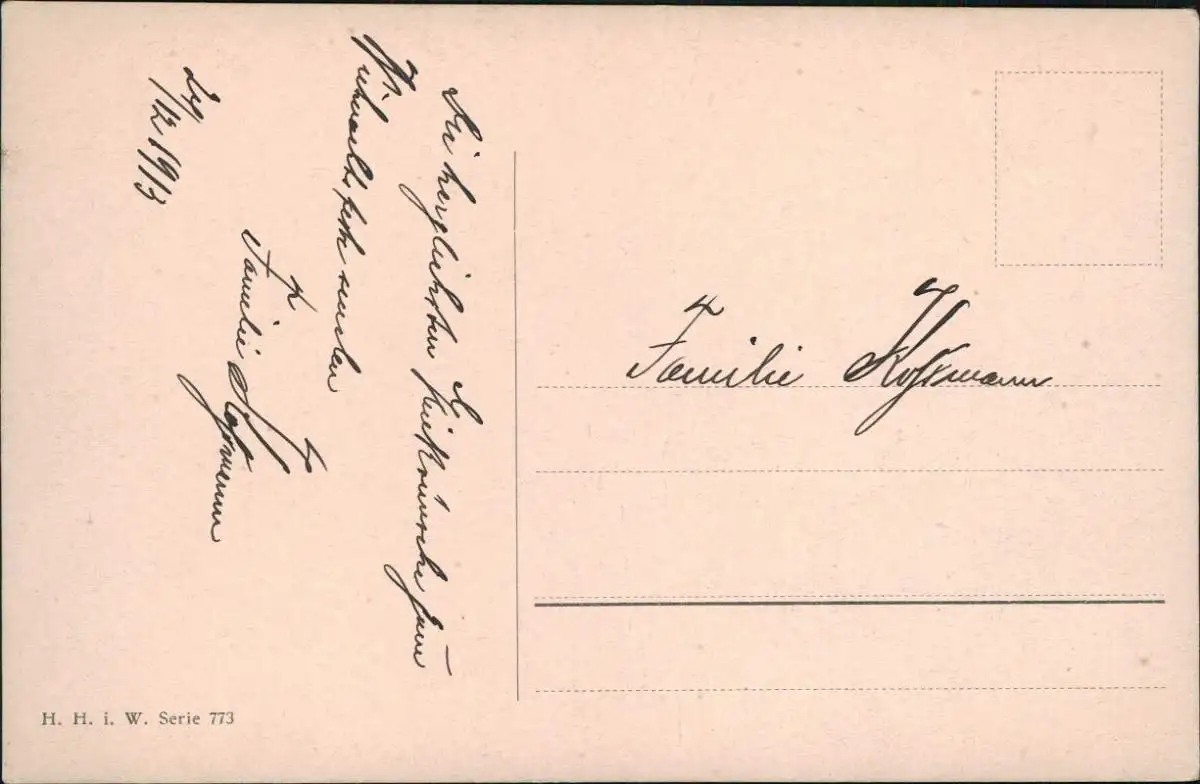 Die herzlichsten Glückwünsche zum
Weihnachtsfeste senden
Familie
24/12 1913
Familie Hoffmann
H. H. i. W. Serie 773